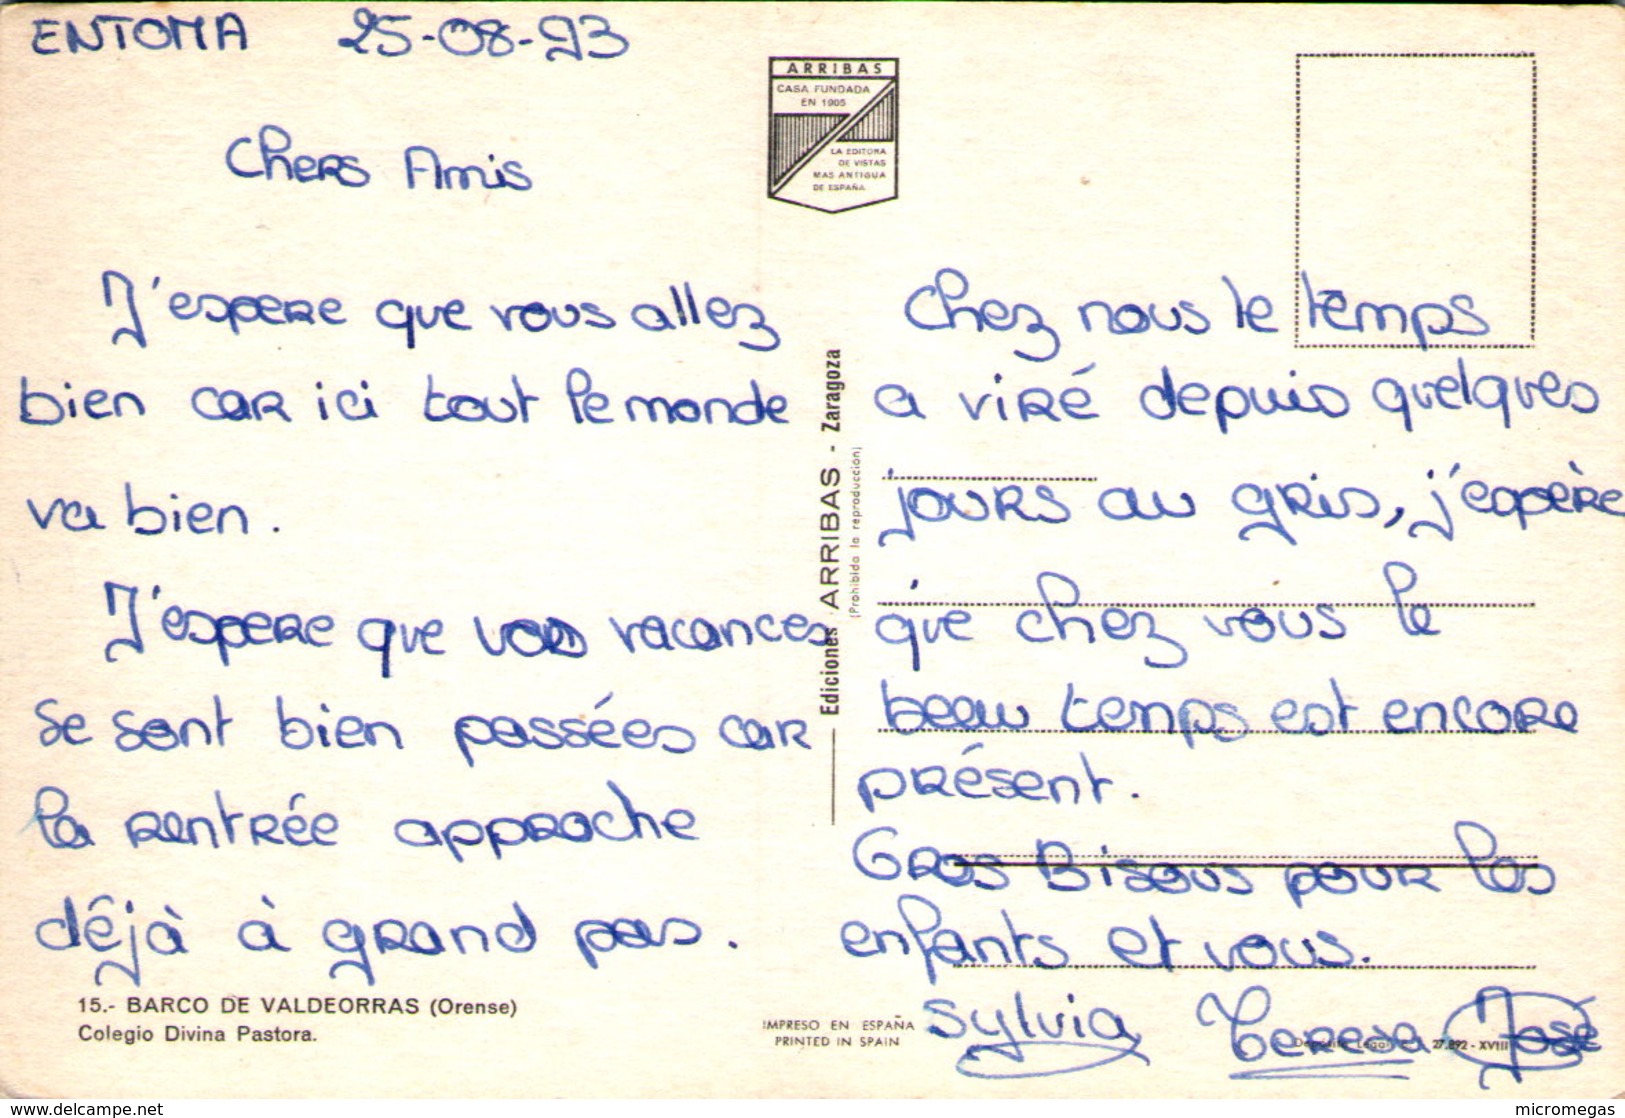 ENTOMA 25-08-93
Chers Amis
J'espere que vous allez
bien car ici tout le monde
va bien.
J'espere que vos vacances
se sont bien passées car
la rentrée approche
déjà à grand pas.
15.- BARCO DE VALDEORRAS (Orense)
Colegio Divina Pastora.
ARRIBAS
CASA FUNDADA
EN 1905
LA EDITORA
DE VISTAS
MAS ANTIGUA
DE ESPAÑA
Ediciones ARRIBAS - Zaragoza
(Prohibida la reproducción)
IMPRESO EN ESPAÑA
PRINTED IN SPAIN
Chez nous le temps
a viré depuis quelques
jours au gris, j'espère
que chez vous le
beau temps est encore
présent.
Gros Bisous pour les
enfants et vous.
Sylvia Teresa José
Depósito Legal 27.892 - XVIII
www.delcampe.net
micromegas